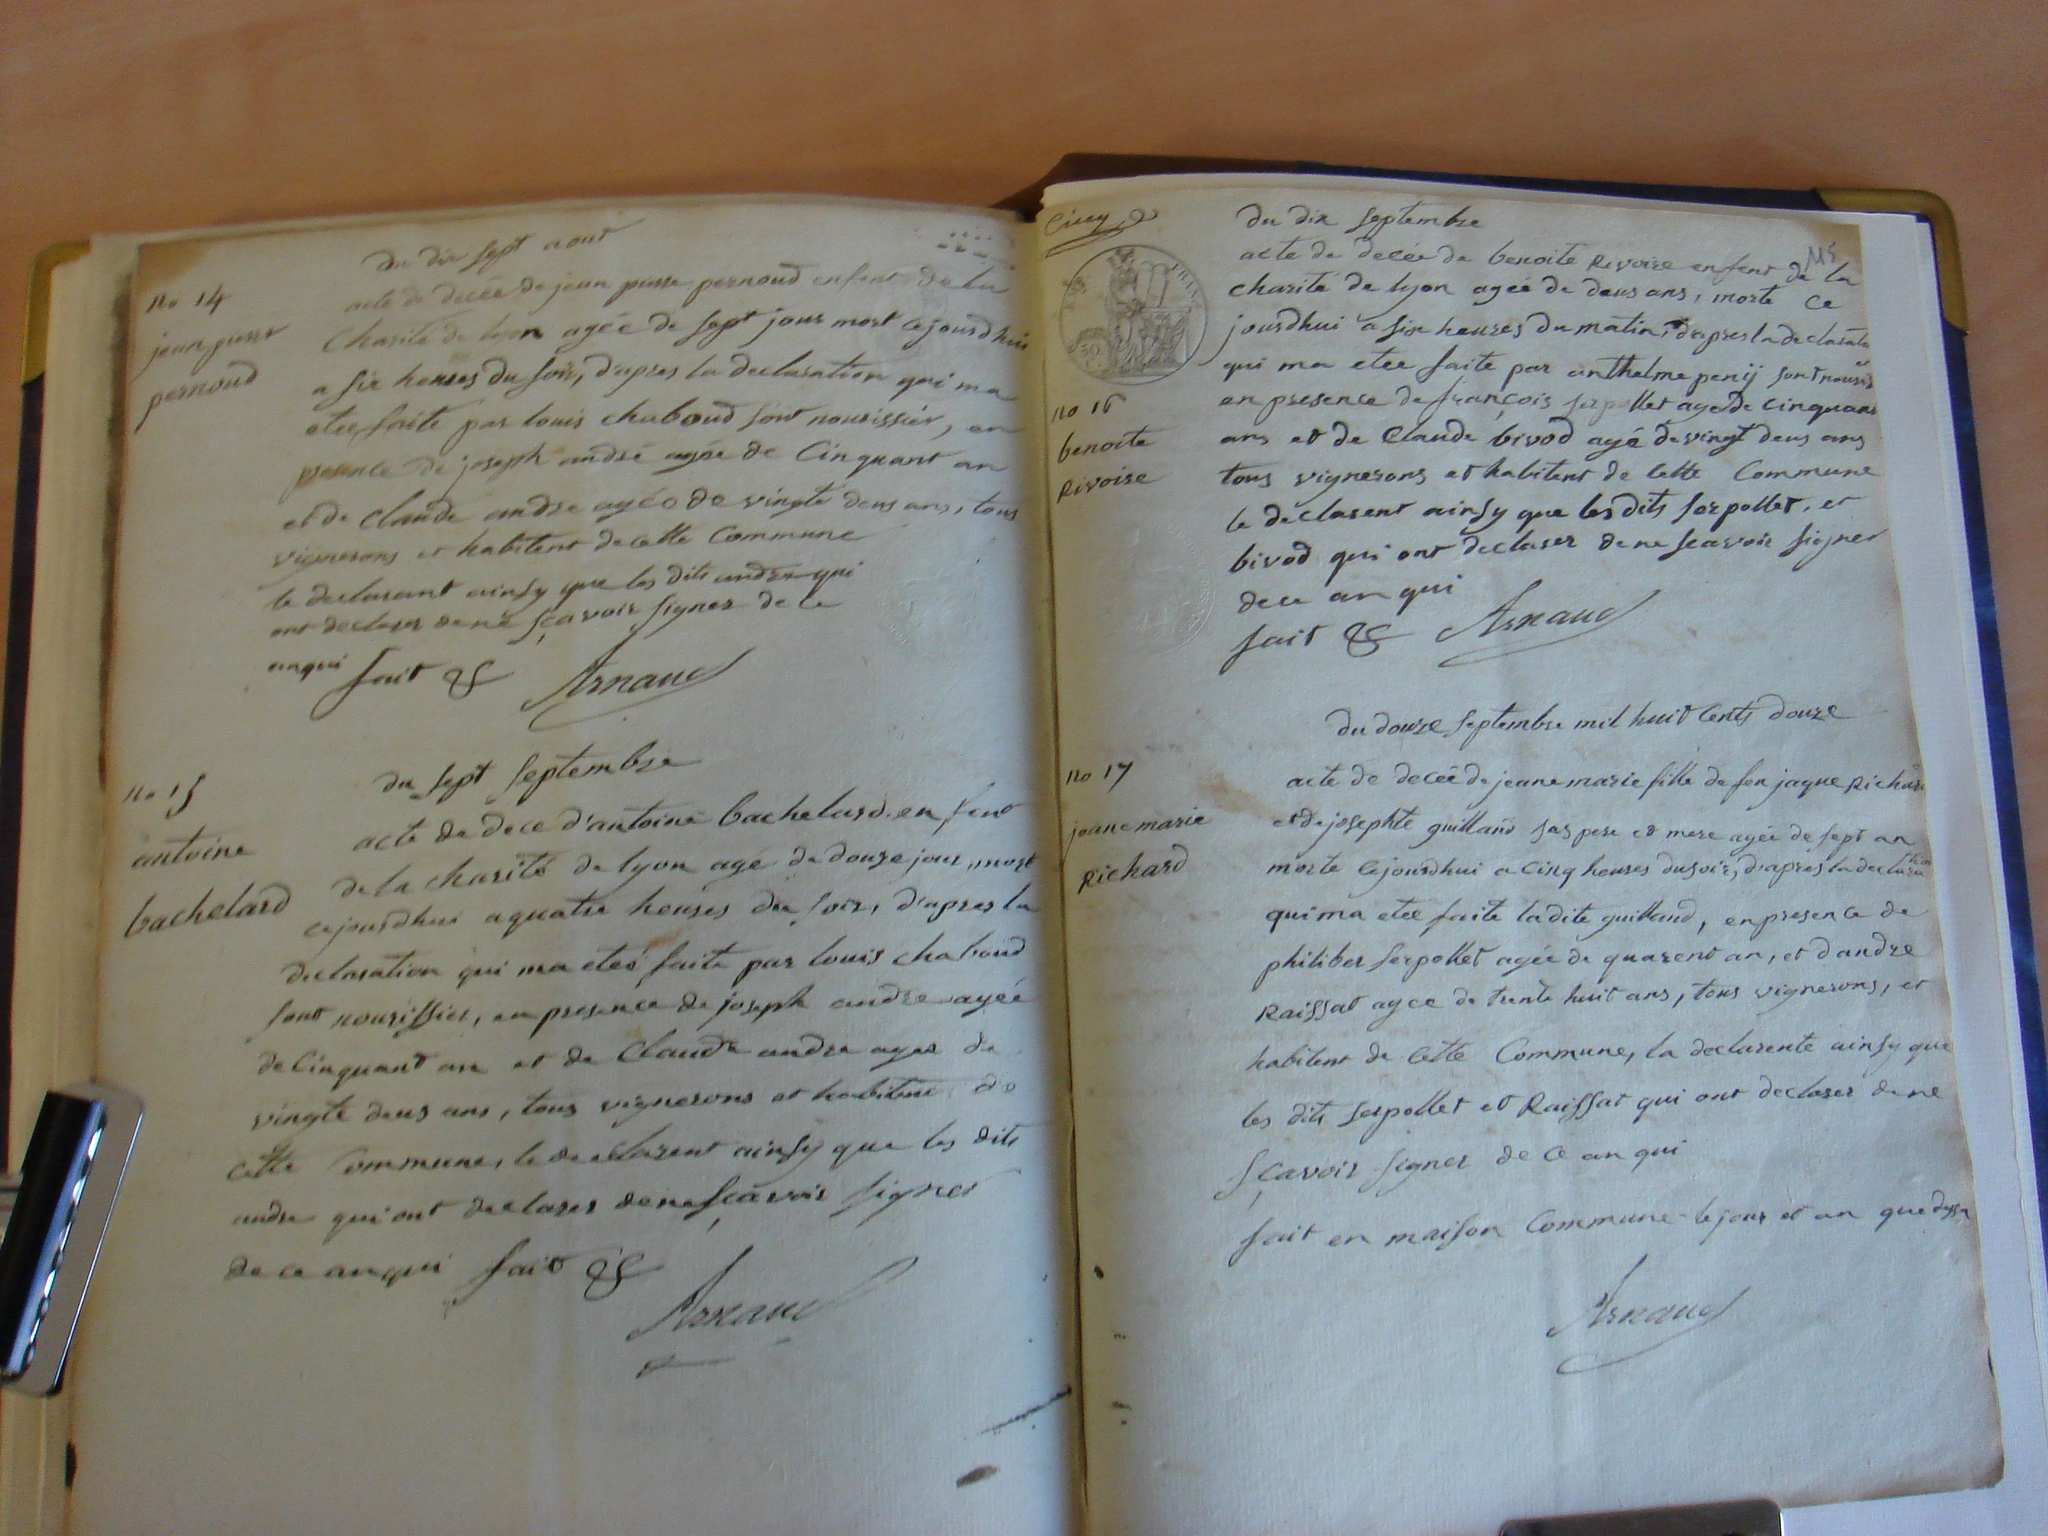 du dix sept aout
no 14
jean pierre
pernoud
acte de decée de jean pierre pernoud enfent de la
Charité de lyon agéé de sept jour mort cejourdhui
a six heures du soir, d'apres la declaration qui ma
eteé faite par louis chaboud sont nourissier, en
presence de joseph andré agée de Cinquant an
et de Claude andre agéé de vingte deus ans, tous
vignerons et habitent de cette Commune
le declarant ainsy que les dits andre qui
ont declarer de ne sçavoir signer de ce
anqui fait &
Arnaud
du sept septembre
no 15
antoine
bachelard
acte de decé d'antoine bachelard enfent
de la charité de lyon agé de douze jour, mort
cejourdhui a quatre heures du soir, d'apres la
declaration qui ma eteé faite par louis chaboud
sont nourissier, en presence de joseph andre agéé
de Cinquant an et de Claude andre agee de
vingte deus ans, tous vignerons et habitent de
cette Commune, le declarent ainsy que les dits
andre qui ont declarer de ne sçavoir signer
de ce anqui fait &
Arnaud
115
du dix septembre
no 16
benoite
Rivoire
acte de decée de benoite Rivoire enfent de la
charité de lyon agéé de deus ans, morte Ce
jourdhui a six heures du matin, d'apres la declaration
qui ma eteé faite par anthelme penij sont
en presence de françois serpollet agé de Cinquant
ans et de Claude bivod agé de vingt deus ans
tous vignerons et habitent de Cette Commune
le declarent ainsy que les dits serpollet, et
bivod qui ont declarer de ne sçavoir signer
de ce an qui
fait & Arnaud
du douze septembre mil huit Cents douze
no 17
jeane marie
Richard
acte de decéé de jeane marie fille de feu jaque Richard
et de josephte guilland ses pere et mere agée de sept an
morte Cejourdhui a Cinq heures du soir, d'apres la declaration
qui ma eteé faite ladite guilland, en presence de
philiber serpollet agéé de quarent an, et d andre
Raissat agee de trente huit ans, tous vignerons, et
habitent de Cette Commune, la declarente ainsy que
les dits serpollet et Raissat qui ont declarer de ne
sçavoir signer de ce an qui
fait en maison Commune le jour et an que dessu
Arnaud